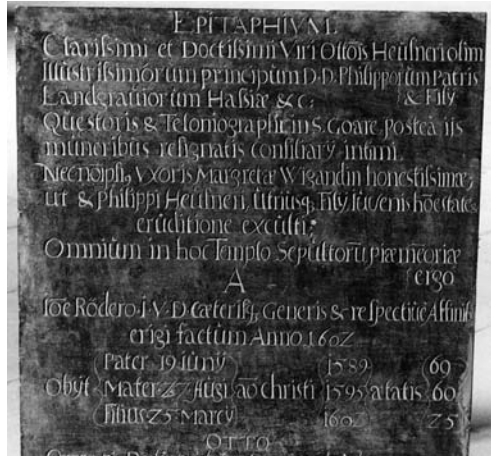 EPITAPHIVM
Clarissimi et Doctissimi Viri Ottõis Heusneri olim
Illustrissimórum principum D.D. Philipporum Patris
Landgrauiorum Hassiæ &c: & Fily
Questoris & Teloniographi in S. Goare postea ijs
muneribus resignatis consiliarÿ intimi.
Necnõ ipsiq Vxoris Margretæ Wigandin honestissimæ,
ut & Philippi Heusneri, Utriusq Filÿ iuvenis
eruditione exculti:
Omnium in hoc Templo Sepultorũ piæ mẽoriæ
A ergo
Rödero I.V.D. cæterisq Generis & respectiuè Affinib
erigi factum Anno 1602
Pater 19 iunÿ 1589 69
Obÿt Mater Augi aõ christi 1595 ætatis 60
filius 25 Marcÿ 1602 25
OTTO